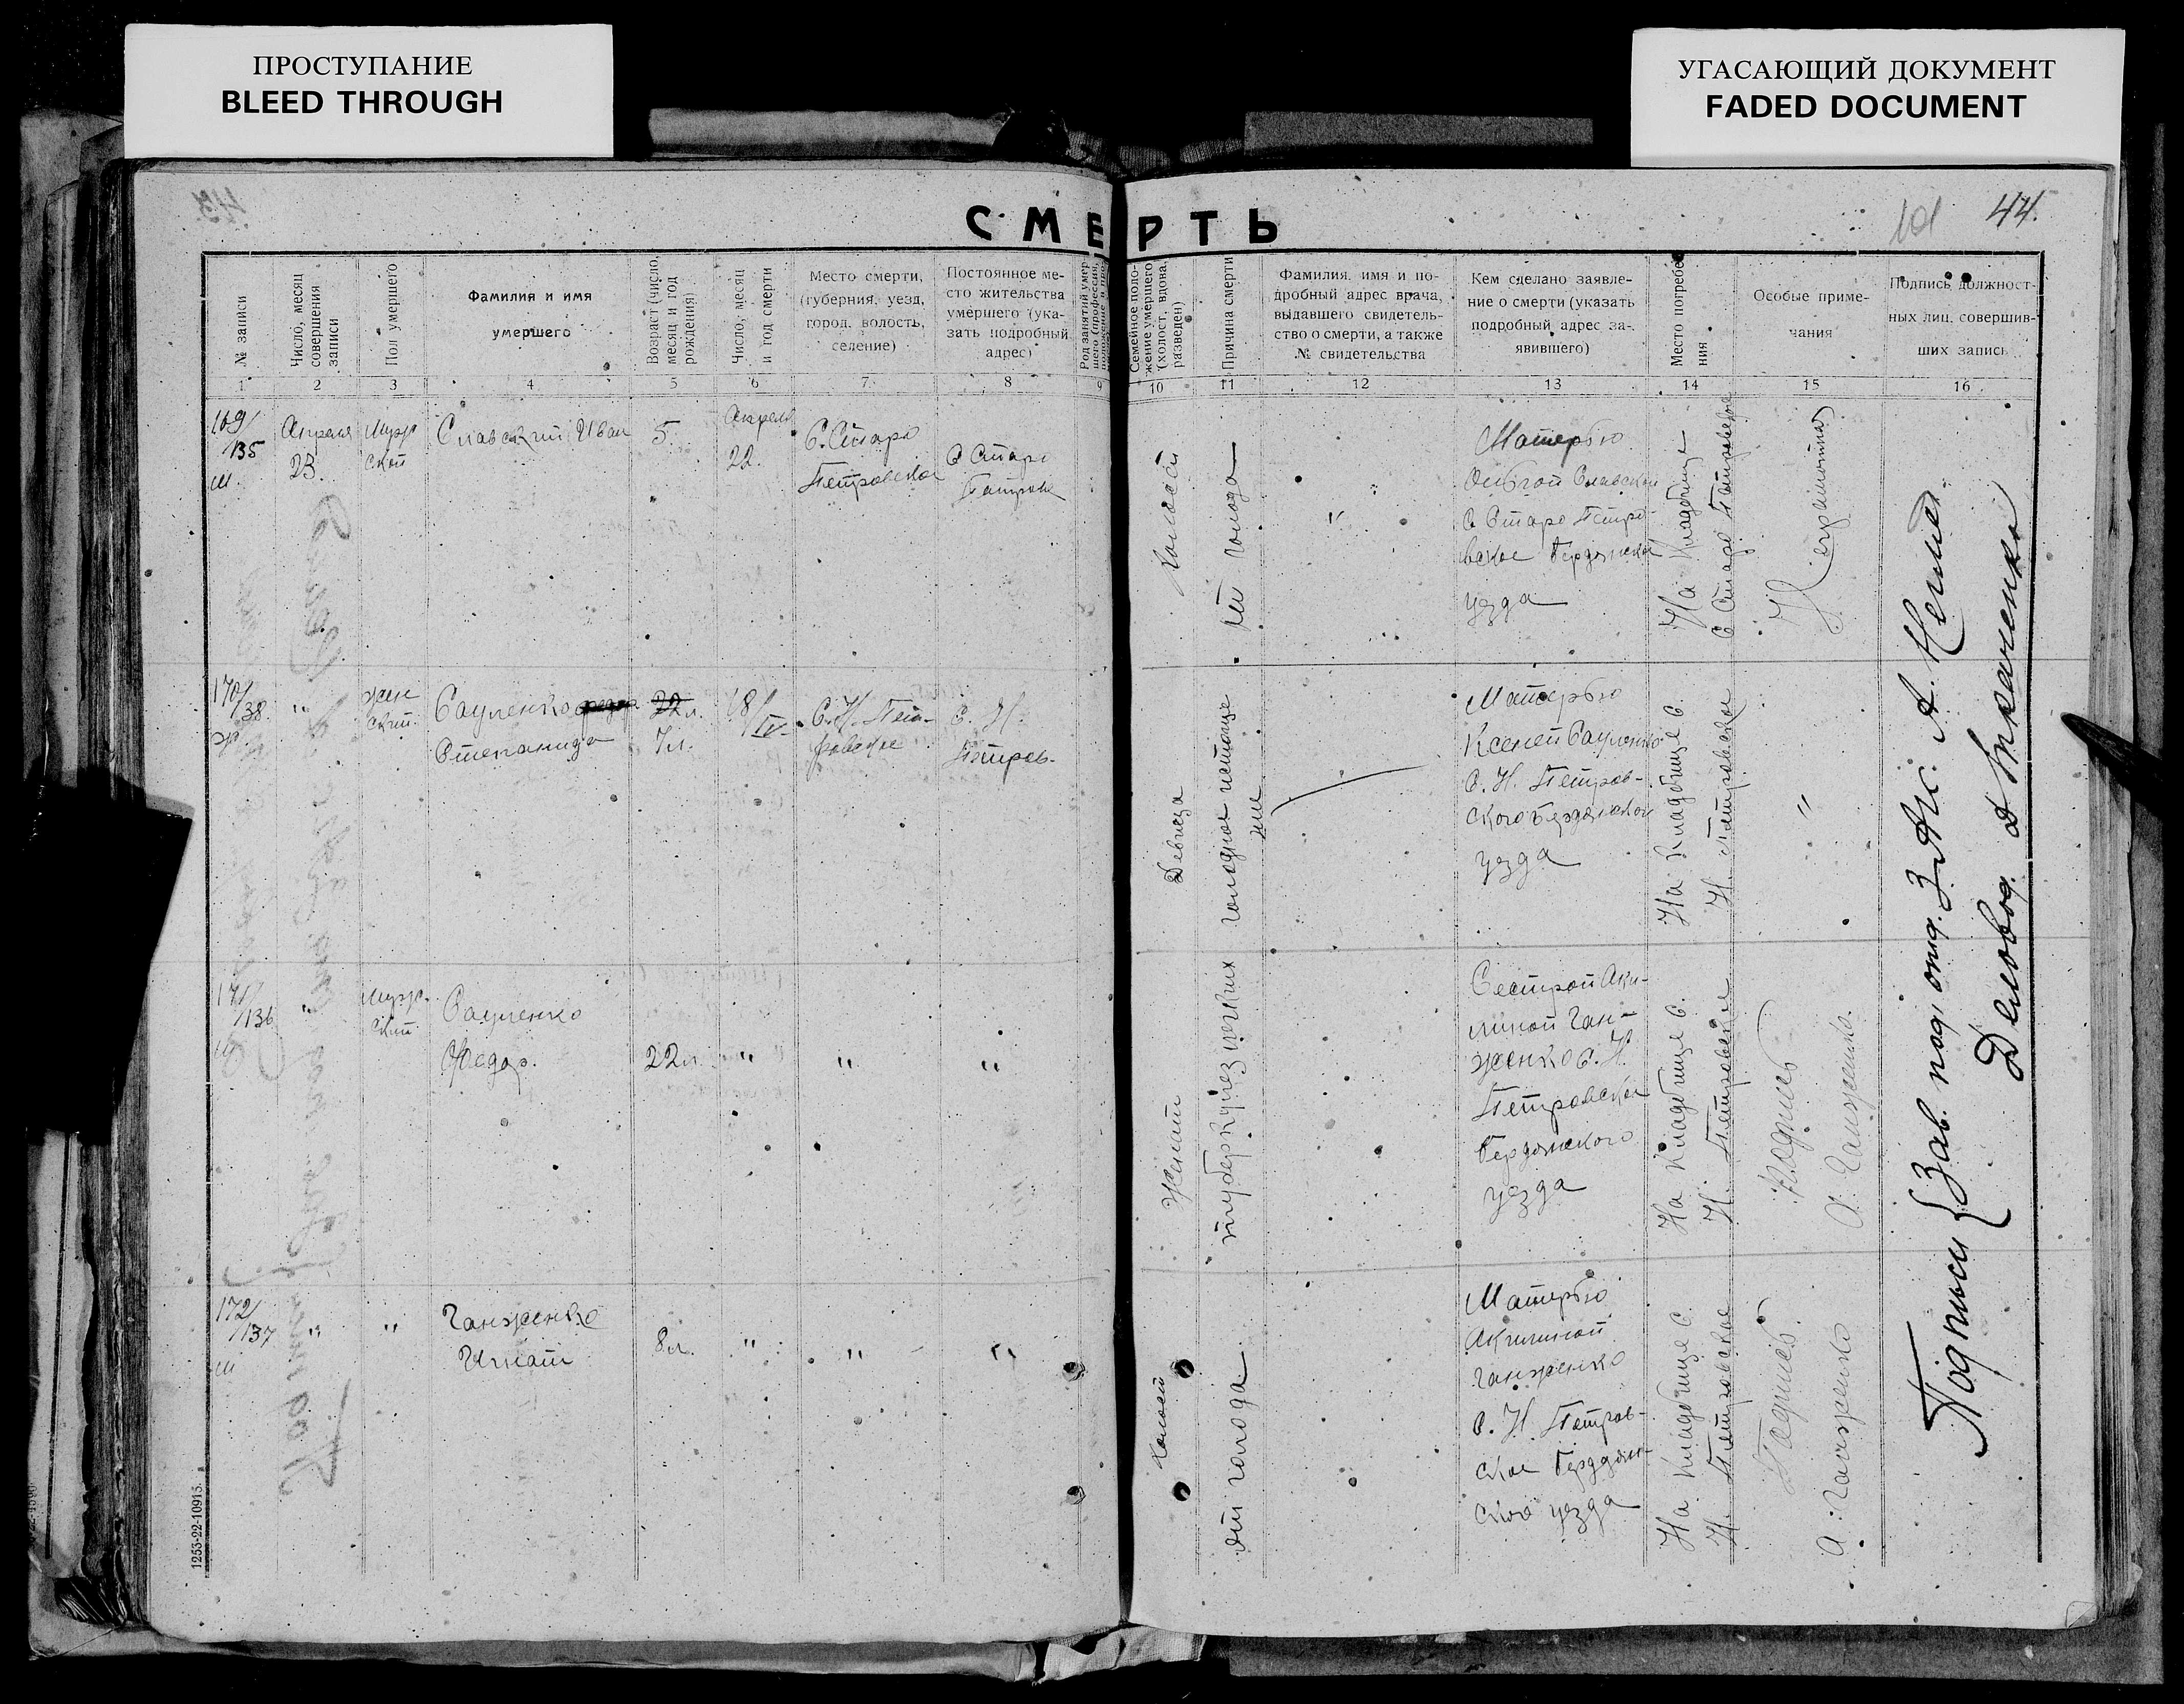 ПРОСТУПАНИЕ
BLEED THROUGH
УГАСАЮЩИЙ ДОКУМЕНТ
FADED DOCUMENT
44.
СМЕРТЬ
№ записи
Число, месяц
совершения
записи
Пол умершего
Фамилия и имя
умершего
Возраст (число,
месяц и год
рождения)
Число, месяц
и год смерти
Место смерти,
(губерния, уезд,
город, волость,
селение)
Постоянное ме-
сто жительства
умершего (ука-
зать подробный
адрес)
Род занятий умер-
шего (профессия,
Семейное поло-
жение умершего
(холост, вдова,
разведен)
Причина смерти
Фамилия, имя и по-
дробный адрес врача,
выдавшего свидетель-
ство о смерти, а также
№ свидетельства
Кем сделано заявле-
ние о смерти (указать
подробный адрес за-
явившего)
Место погребе-
ния
Особые приме-
чания
Подпись должност-
ных лиц, совершив-
ших запись
1 2 3 4 5 6 7 8 9 10 11 12 13 14 15 16
169/
135
м.
Апреля
23.
Муж
ской
Славский Иван
5.
Апреля
22.
С. Старо
Петровское
С Старо
Петровс
Холост
От голода
"
Матерью
Ольгой Славской
С Старо Петро-
вское Бердянског
уезда
На Кладбище
С Старо Петровское
Неграмотна
170/
38.
ж.
"
жен
ский.
Сауленко
Степанида
22л.
7л.
18/
IV.
С. Н. Пет-
ровское
С. Н.
Петров-
Девица
голодное истоще
ние
Матерью
Ксенией Сауленко
С. Н. Петров-
ского Бердянског
уезда
На Кладбище С.
Н. Петровское
"
171/
136
м
"
Муж-
ский
Сауленко
Федор.
22л.
"
"
"
Женат
туберкулез легких
Сестрой Аки-
линой Ган-
женко С. Н.
Петровское
Бердянского
уезда
На Кладбище С.
Н. Петровское
Подпись
А. Ганженко.
172/
137
м
"
"
Ганженко
Игнат
8л.
"
"
"
Холост
От голода
Матерью
Акилиной
Ганженко
С. Н. Петров-
ское Бердян-
ского уезда
На Кладбище С.
Н. Петровское
Подпись.
А. Ганженко
Подписи { Зав. под. отд. ЗАГС. А.
Деловод. Д Ткаченко
1253-22-10915.